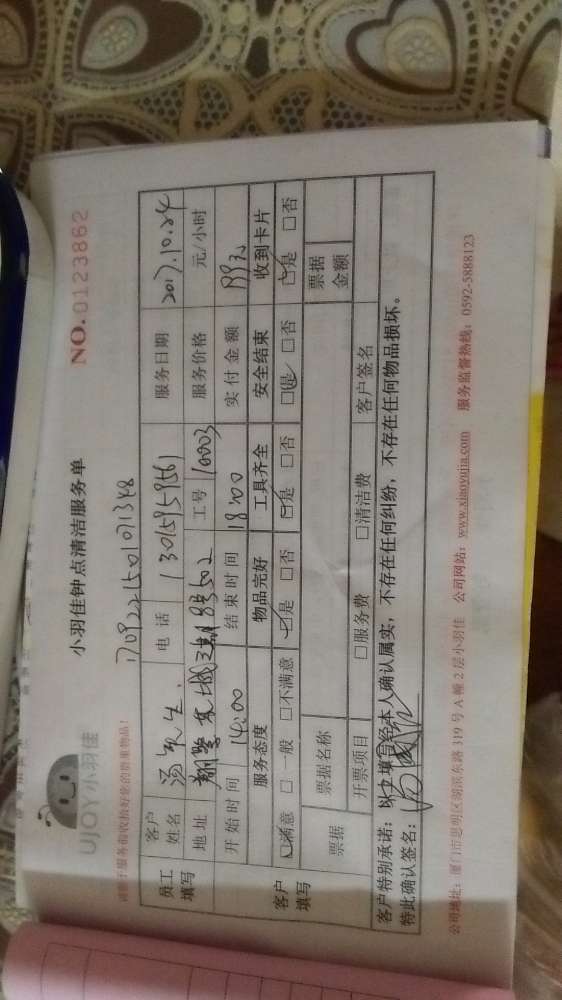 UJOY小羽佳
小羽佳钟点清洁服务单
NO.0123862
请顾客于服务前收拾好您的贵重物品!
员工填写 客户姓名 汤先生 电话 服务日期 2017.10.24
地址 工号 10003 服务价格 元/小时
开始时间 14:00 结束时间 18:00 实付金额 199元
客户填写 服务态度 物品完好 工具齐全 安全结束 收到卡片
☑满意 □一般 □不满意 ☑是 □否 ☑是 □否 ☑是 □否 ☑是 □否
票据 票据名称 票据金额
开票项目 □服务费 □清洁费 客户签名
客户特别承诺:以上填写经本人确认属实,不存在任何纠纷,不存在任何物品损坏。
特此确认签名:
公司地址:厦门市思明区湖滨东路319号A幢2层小羽佳 公司网站:www.xiaoyujia.com 服务监督热线:0592-5888123